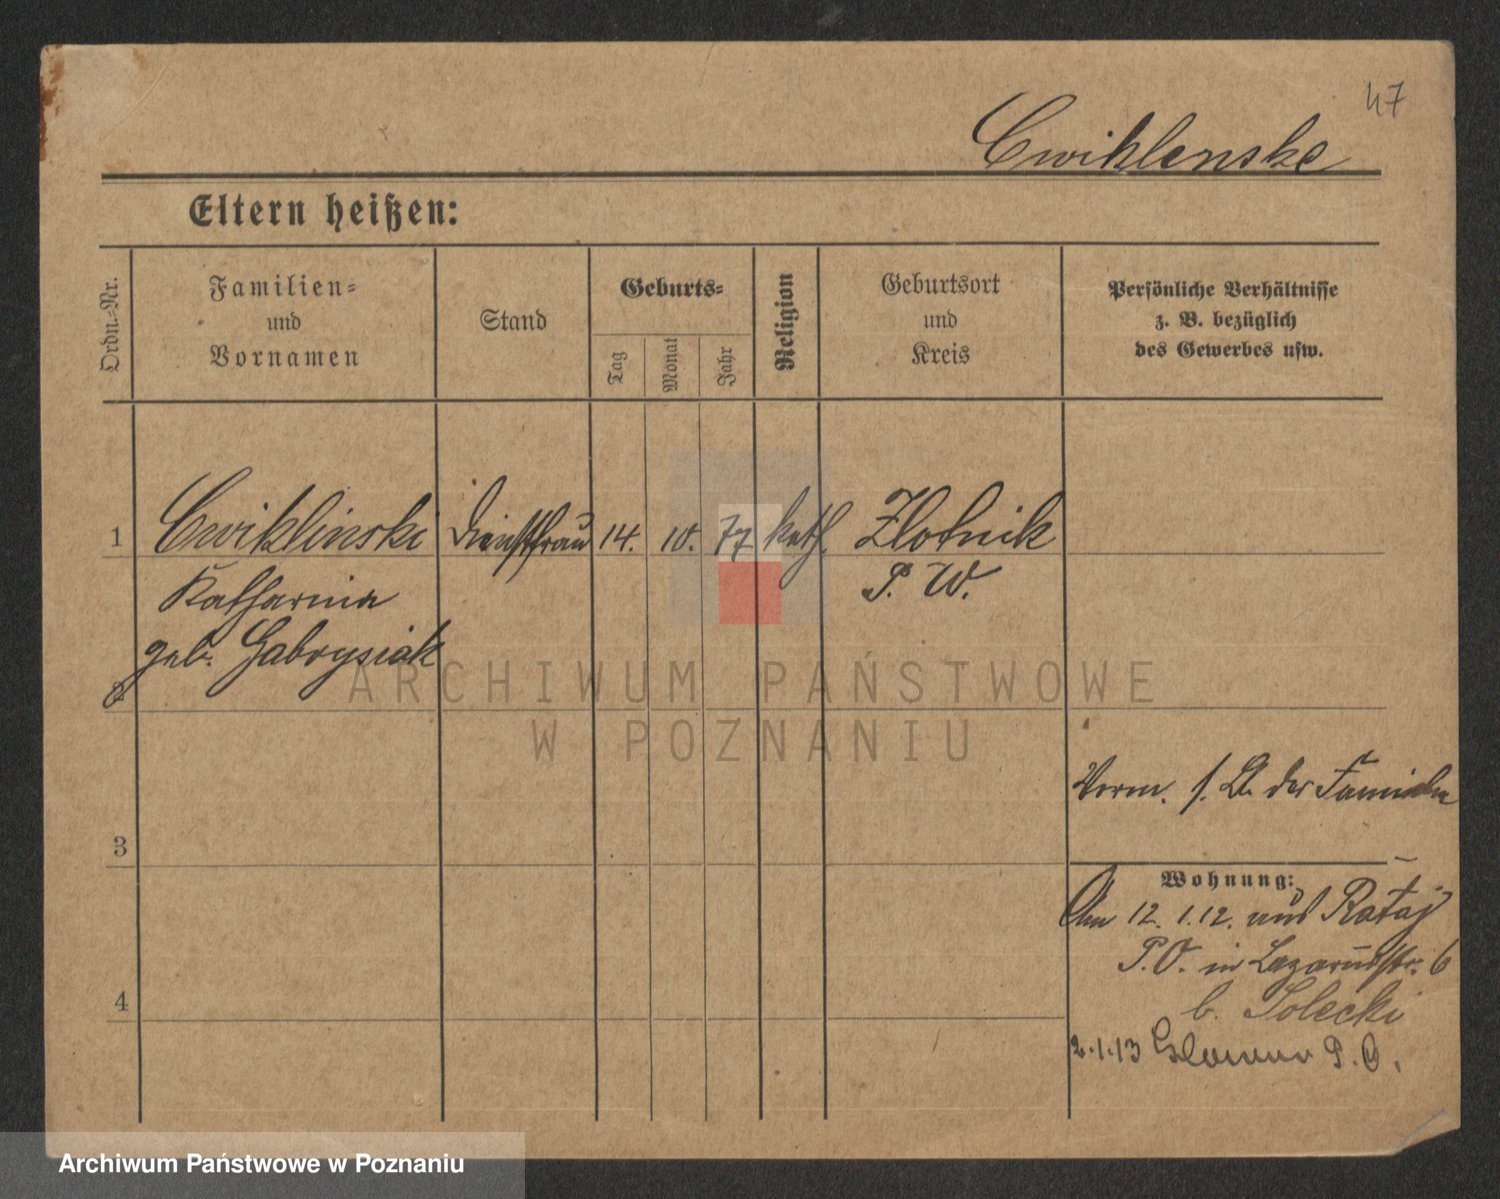 47
Cwiklenske
Eltern heißen:
Ordn.-Nr.
Familien-
und
Vornamen
Stand
Geburts-
Tag
Monat
Jahr
Religion
Geburtsort
und
Kreis
Persönliche Verhältnisse
z. B. bezüglich
des Gewerbes usw.
1 Cwiklinski Dienstfrau 14. 10. 77 kath. Zlotnik
Katharina P. W.
geb. Gabrysiak
2
Verm. s. A. der Familie
3
Wohnung:
Am 12. 1.12. aus Rataj
P.O. in Lazarusstr. 6
b. Solecki
4
2.1.13 P. O.
ARCHIWUM PAŃSTWOWE
W POZNANIU
Archiwum Państwowe w Poznaniu